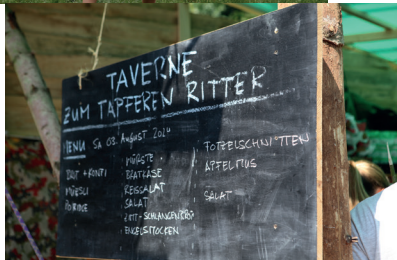 TAVERNE
ZUM TAPFEREN RITTER
MENU SA 03. AUGUST 2024
BROT + KONFI
MÜESLI
PORRIDGE
WÜRSTE
BRATKÄSE
REISSALAT
SALAT
ZIMT-SCHLANGENBROT
ENGELSLOCKEN
FOTZELSCHNITTEN
APFELMUS
SALAT